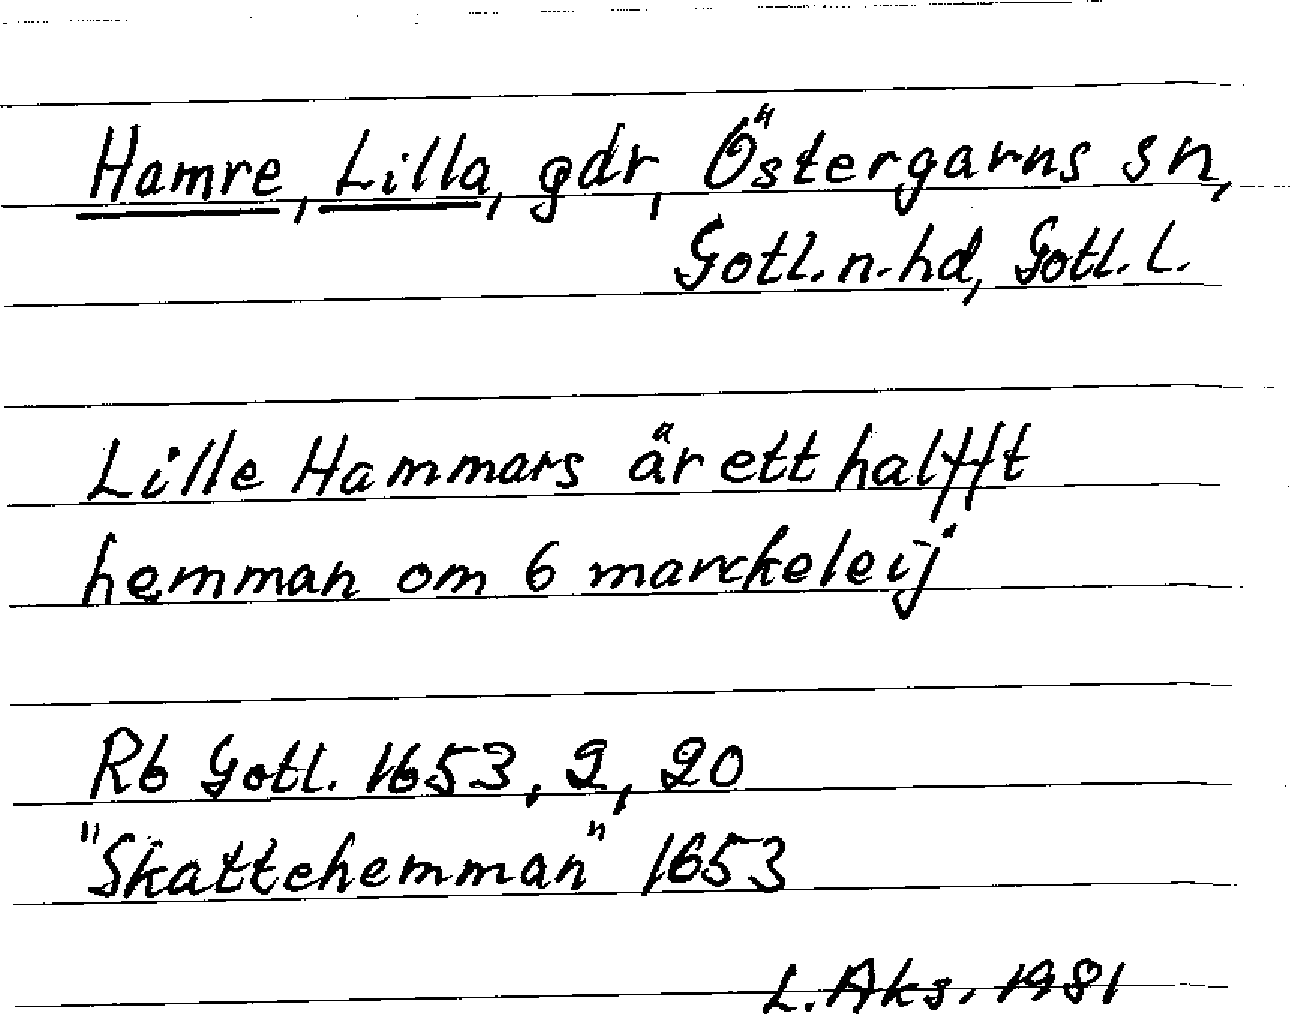 Hamre, Lilla, gdr, Östergarns sn,
Gotl. n. hd, Gotl. l.
Lille Hammars är ett halfft
hemman om 6 marckeleij
Rb Gotl. 1653, 2, 20
"Skattehemman" 1653
L. Aks. 1981